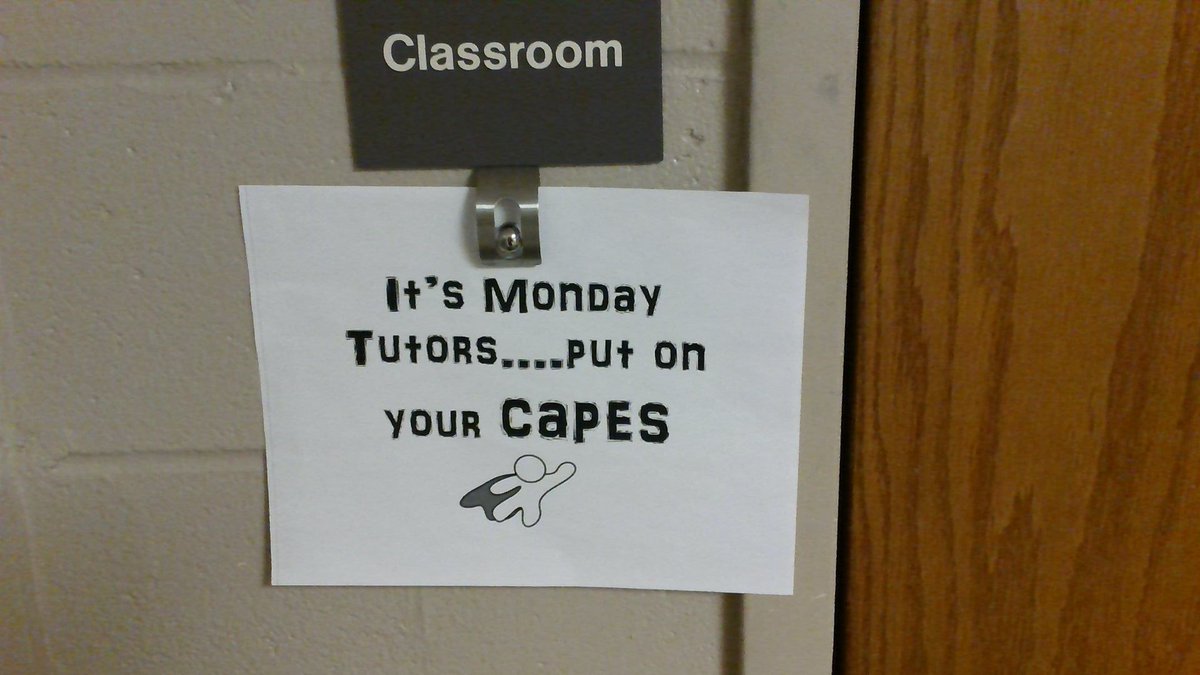 Classroom
It's Monday
Tutors....put on
your Capes